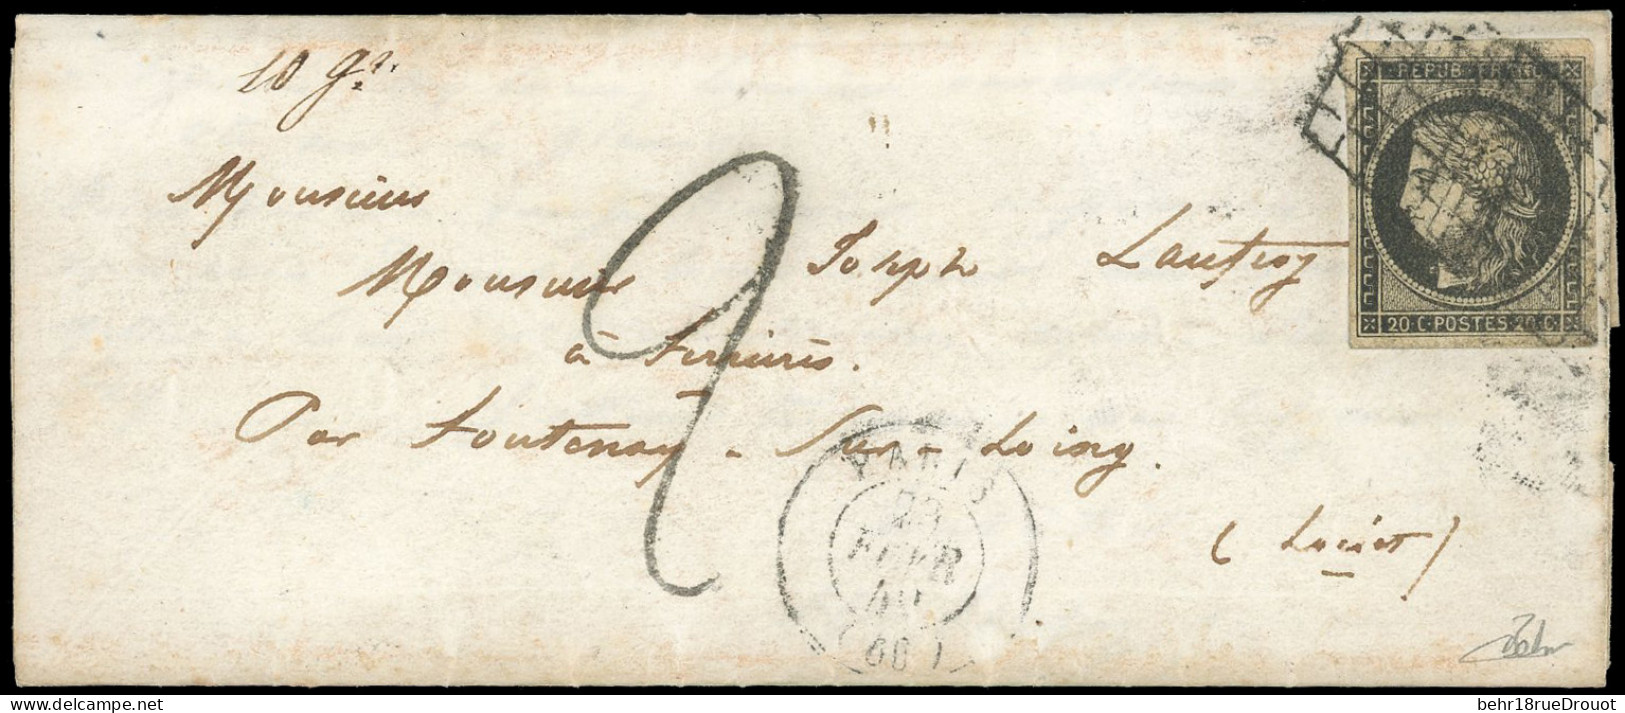 10 gr.
REPUB. FRANC.
20 C. POSTES 20 C.
Monsieur
Monsieur Joseph
à Ferrières.
Par Fontenay-Sur-Loing.
(Loiret)
2
PARIS
FEVR
49
(60)
behr18rueDrouot